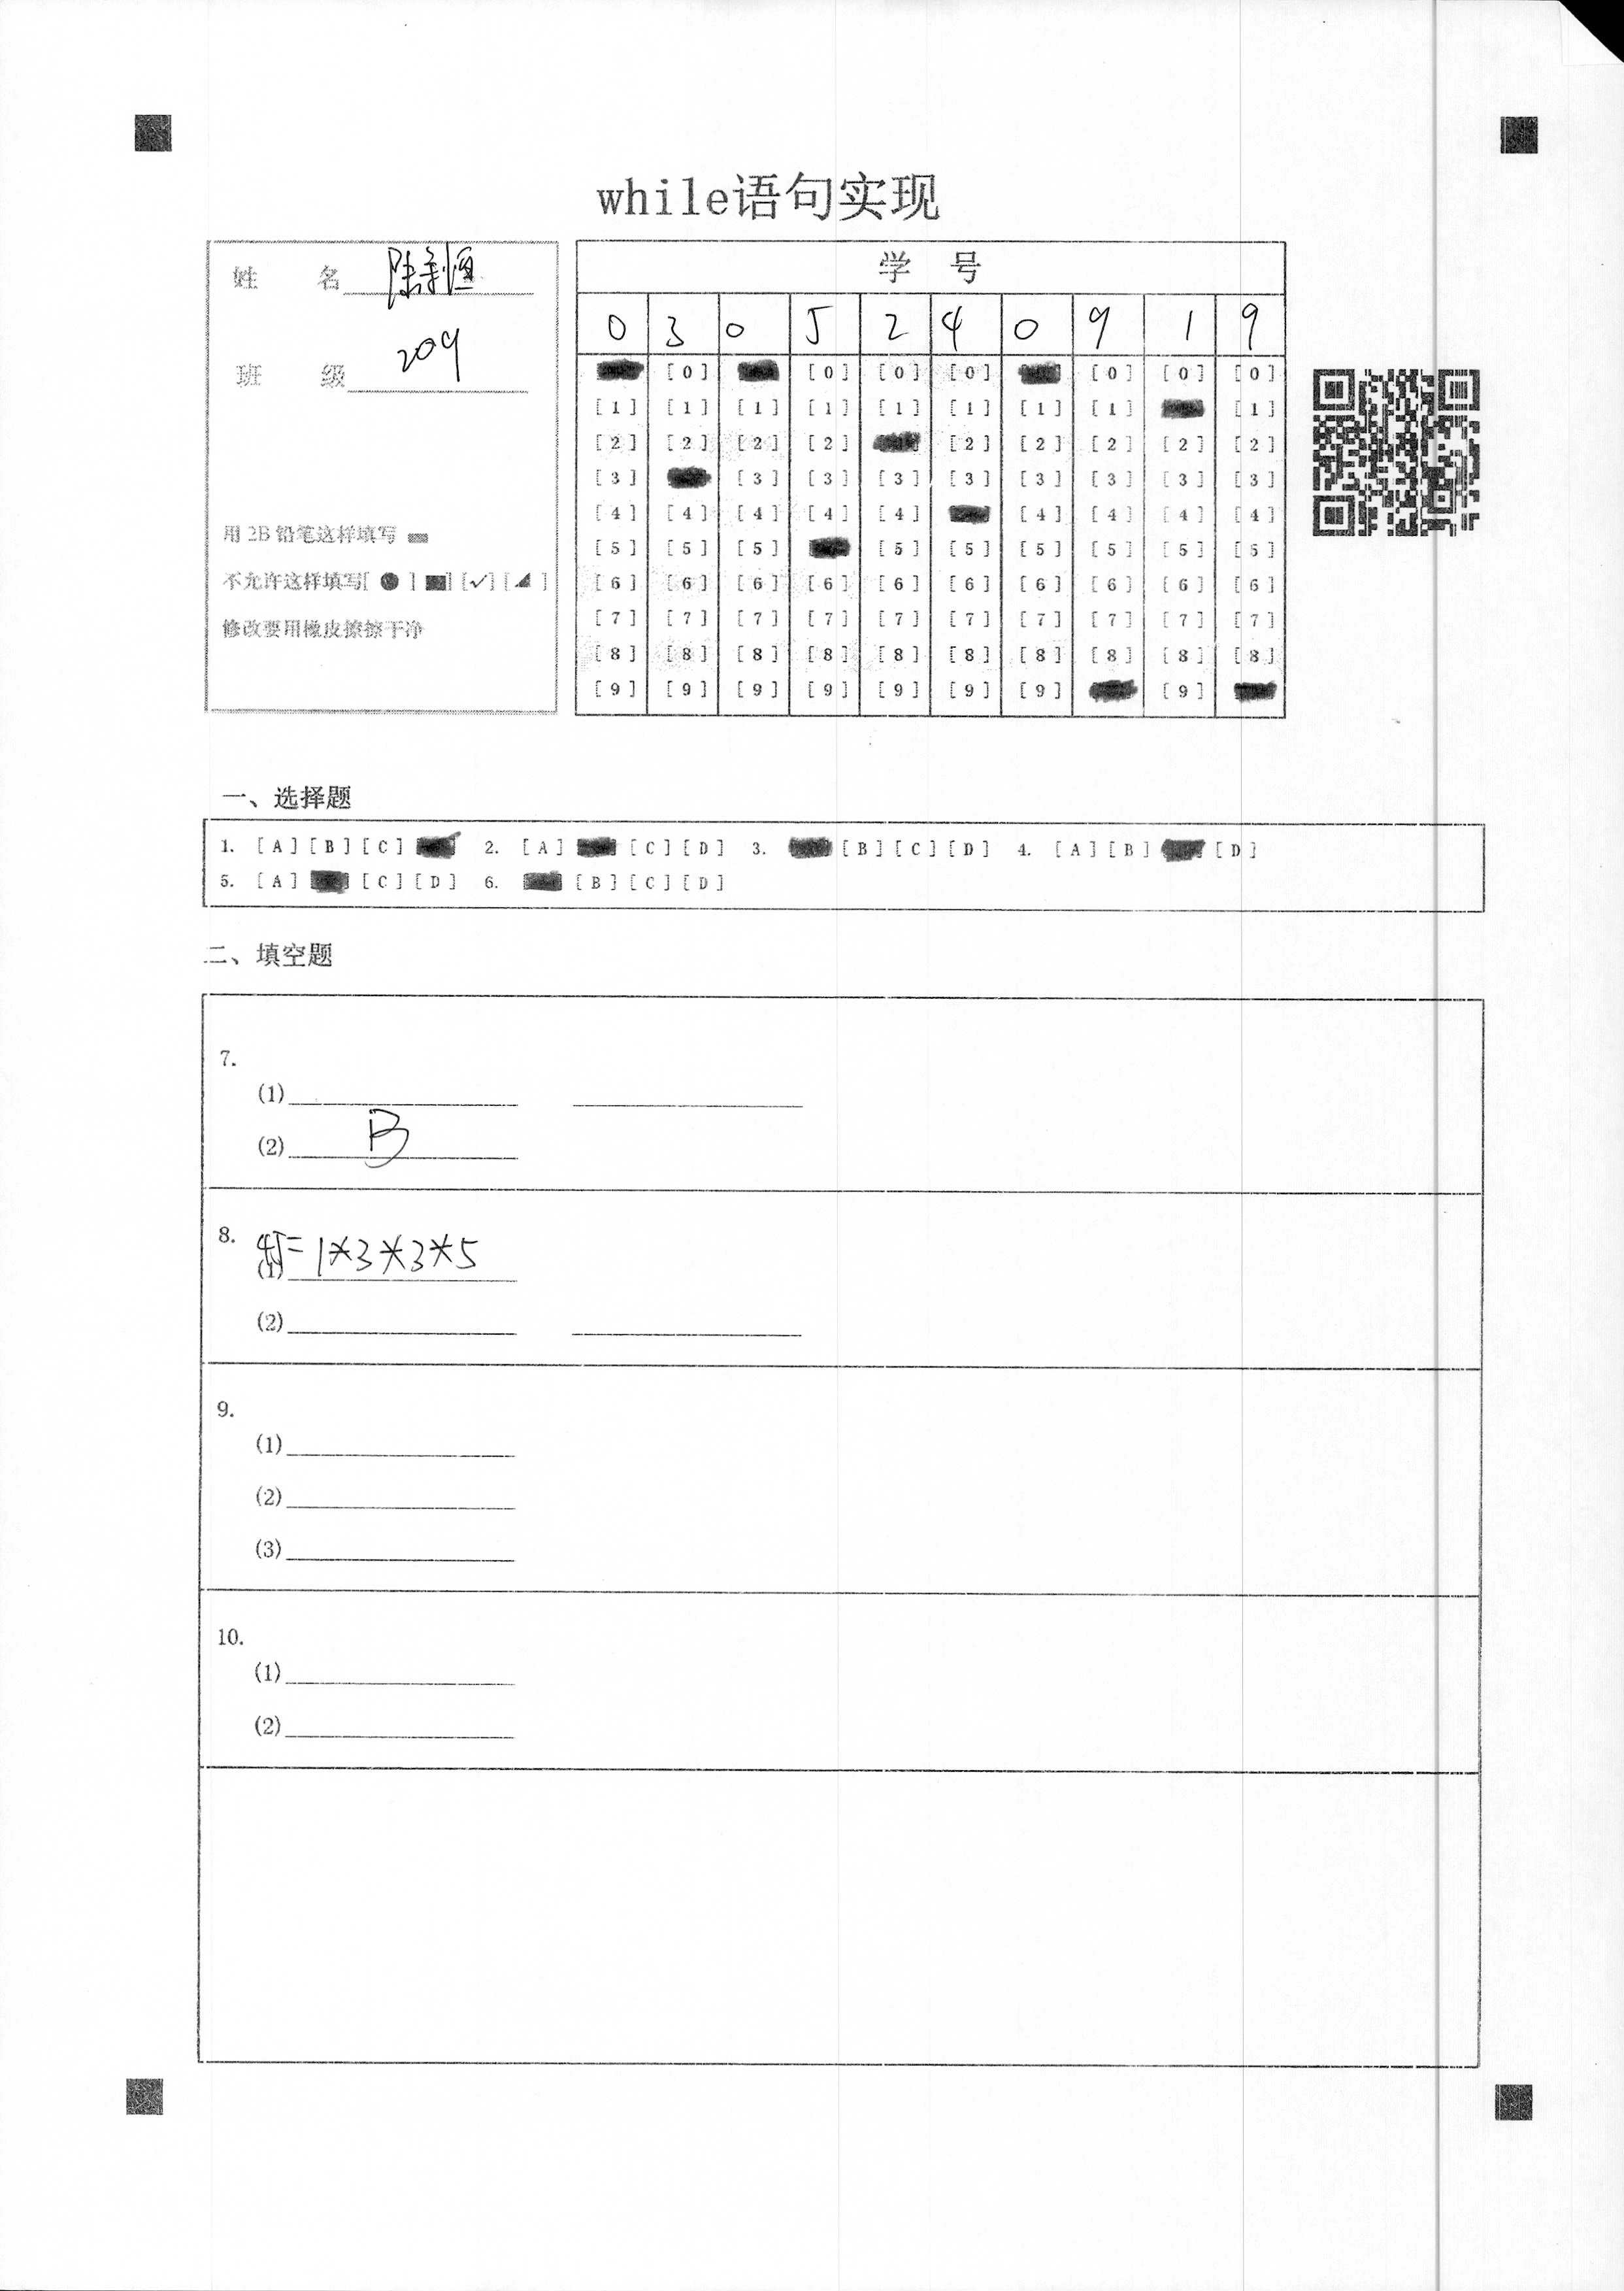 while语句实现
姓 名
班 级 209
用 2B 铅笔这样填写
不允许这样填写[ ● ] [■] [✓] [◢ ]
修改要用橡皮擦擦干净
学 号
0 3 0 5 2 4 0 9 1 9
[0] [0] [0] [0] [0] [0] [0]
[1] [1] [1] [1] [1] [1] [1] [1] [1]
[2] [2] [2] [2] [2] [2] [2] [2] [2]
[3] [3] [3] [3] [3] [3] [3] [3] [3]
[4] [4] [4] [4] [4] [4] [4] [4] [4]
[5] [5] [5] [5] [5] [5] [5] [5] [5]
[6] [6] [6] [6] [6] [6] [6] [6] [6] [6]
[7] [7] [7] [7] [7] [7] [7] [7] [7] [7]
[8] [8] [8] [8] [8] [8] [8] [8] [8] [8]
[9] [9] [9] [9] [9] [9] [9] [9]
一、选择题
1. [A] [B] [C] 2. [A] [C] [D] 3. [B] [C] [D] 4. [A] [B] [D]
5. [A] [C] [D] 6. [B] [C] [D]
二、填空题
7.
(1)
(2) B
8.
(1) 45=1*3*3*5
(2)
9.
(1)
(2)
(3)
10.
(1)
(2)